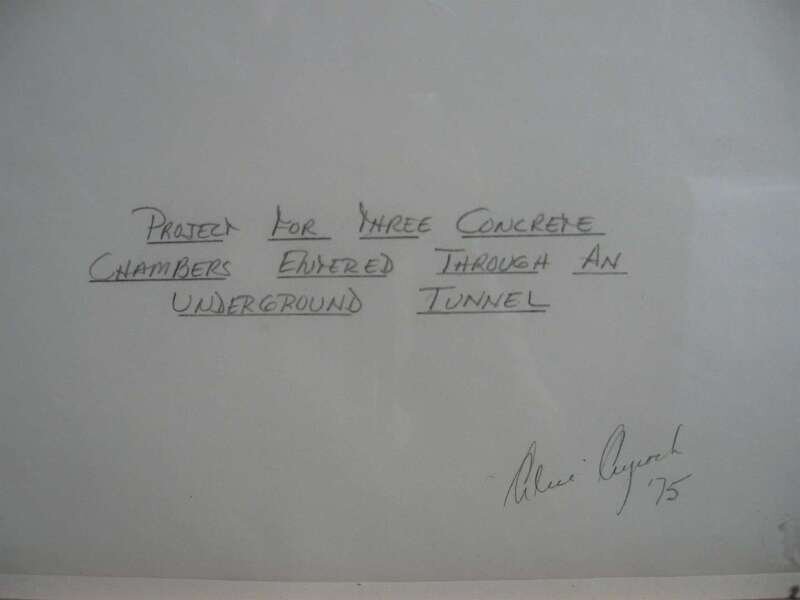 PROJECT FOR THREE CONCRETE
CHAMBERS ENTERED THROUGH AN
UNDERGROUND TUNNEL
Alice Aycock
'75